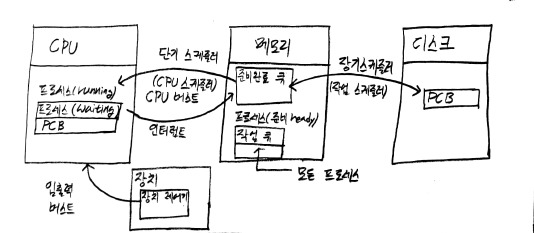 CPU
프로세스(running)
프로세스(waiting)
PCB
단기 스케줄러
(CPU 스케줄러)
CPU 버스트
인터럽트
메모리
준비완료 큐
프로세스(준비 ready)
작업 큐
모든 프로세스
장기스케줄러
(작업 스케줄러)
디스크
PCB
입출력
버스트
장치
장치